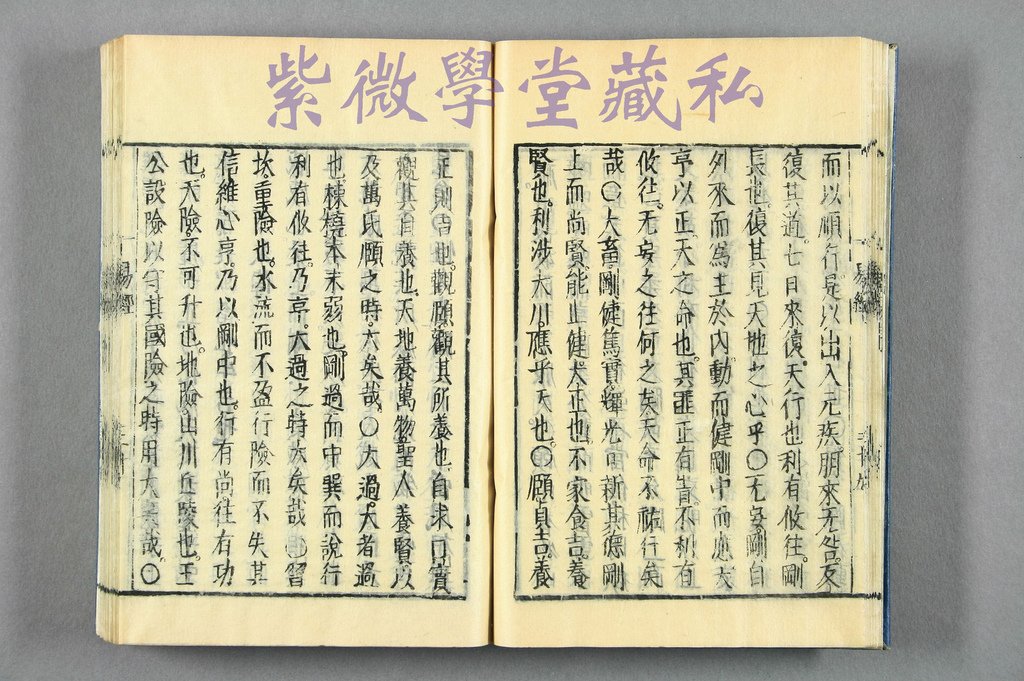 紫微學堂藏私
易經
而以順行是以出入无疾朋來无咎反
復其道。七日來復。天行也利有攸往。剛
長也。復其見天地之心乎〇无妄。剛自
外來而爲主於內動而健剛中而應大
亨以正天之命也。其匪正有眚不利有
攸往。无妄之往何之矣天命不祐行矣
哉〇大畜。剛健篤實輝光日新其德剛
上而尚賢能止健大正也。不家食吉。養
賢也。利涉大川。應乎天也。〇頤貞吉。養
正則吉也。觀頤。觀其所養也。自求口實
觀其自養也。天地養萬物聖人養賢以
及萬民頤之時大矣哉。〇大過。大者過
也。棟橈本末弱也。剛過而中巽而說行
利有攸往。乃亨。大過之時大矣哉〇習
坎重險也。水流而不盈行險而不失其
信維心亨。乃以剛中也。行有尚。往有功
也。天險不可升也。地險。山川丘陵也。王
公設險以守其國險之時用大矣哉。〇
易經